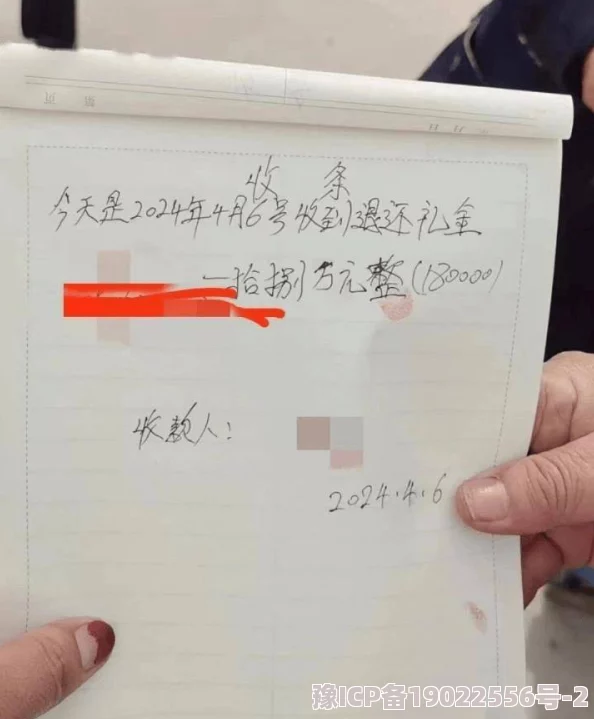 收条
今天是2024年4月6号收到退还礼金
一拾捌万元整(180000)
收款人:
2024.4.6
豫ICP备19022556号-2